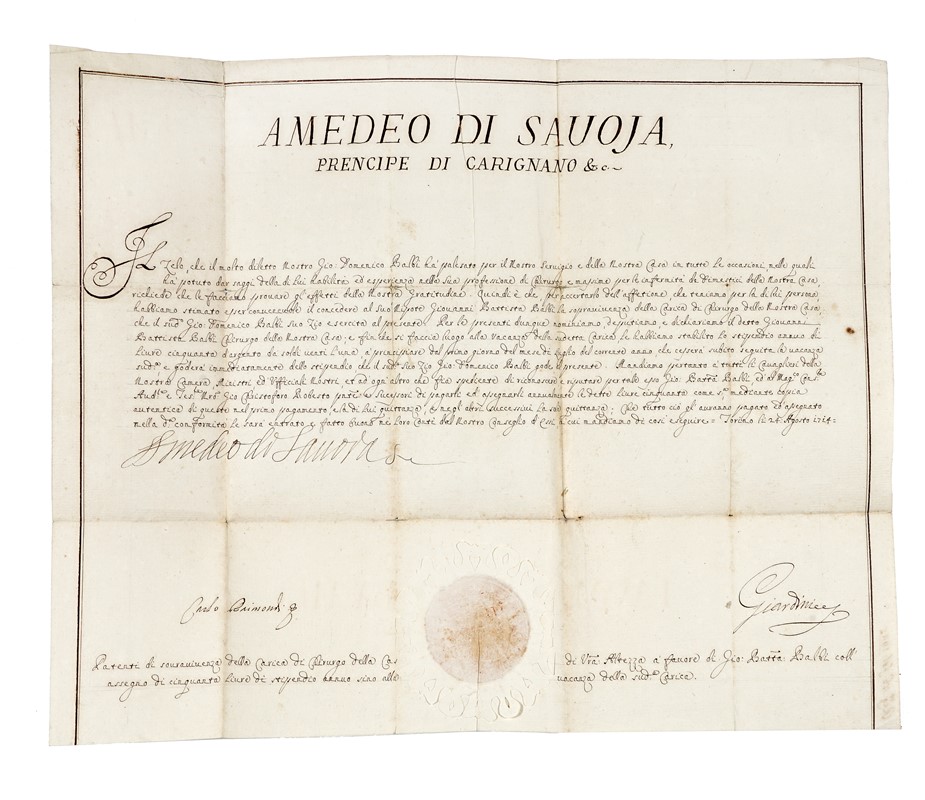 AMEDEO DI SAUOJA,
PRENCIPE DI CARIGNANO &c~
IL Zelo, che il molto diletto Nostro Gio: Domenico Balbi ha palesato per il Nostro Servigio e della Nostra Casa in tutte le occasioni, nelle quali
ha potuto dar saggi della di lui habilità ed esperienza nella sua professione di Chirurgo e massime per le infermità de Dimestici della Nostra Casa,
richiede che le facciamo prouare gli effetti della Nostra Gratitudine. Quindi è che per accertarlo dell'affetione, che teniamo per la di lui persona
habbiamo stimato per conueneuole il concedere al Suo Nipote Giouanni Battista Balbi la soprauiuenza della Carica di Chirurgo della Nostra Casa,
che il sud.º Gio: Domenico Balbi Suo Zio esercita al presente. Per le presenti dunque nominiamo, deputiamo, e dichiariamo il detto Giouanni
Battista Balbi Chirurgo della Nostra Casa; e finche si faccia luogo alla Vacanza della sudetta Carica le habbiamo stabilito lo stipendio annuo di
Liure cinquanta d'argento da soldi uenti l'una, a principiare dal primo giorno del mese di luglio del corrente anno, che cesserà subito seguita la uacanza
sud.ª e goderà immediatamente dello stipendio che il sud.º Suo Zio Gio: Domenico Balbi gode di presente. Mandiamo pertanto a tutti li Caualieri della
Nostra Camera, Ministri ed Ufficiali Nostri, et ad ogni altro che sia spediente di riconoscere e riputare per tale esso Gio: Batta Balbi, ed al Mag.co
Aud.re e Tes.re Nro Gio Christoforo Roberto parte e Sucessori di pagarli ed assegnarli annualmente le dette liure cinquanta come s.ª mediante copia
autentica di queste nel primo pagamento, e la di lui quittanza, e negli altri successiui la sola quittanza. Che tutto ciò gli auranno pagato ed assegnato
nella d.ª conformità le sarà entrato, e fatto buono ne Loro Conti dal Nostro Conseglio d' a cui mandiamo di così eseguire = Torino li 24 Agosto
Amedeo di Sauoia
Carlo Raimondi
Giardini
Patenti di sourauiuenza della Carica di Chirurgo della Cas di Vra: Altezza a fauore di Gio: Batta: Balbi coll'
assegno di cinquanta liure di stipendio annuo sino alla uacanza della sud.ª Carica.